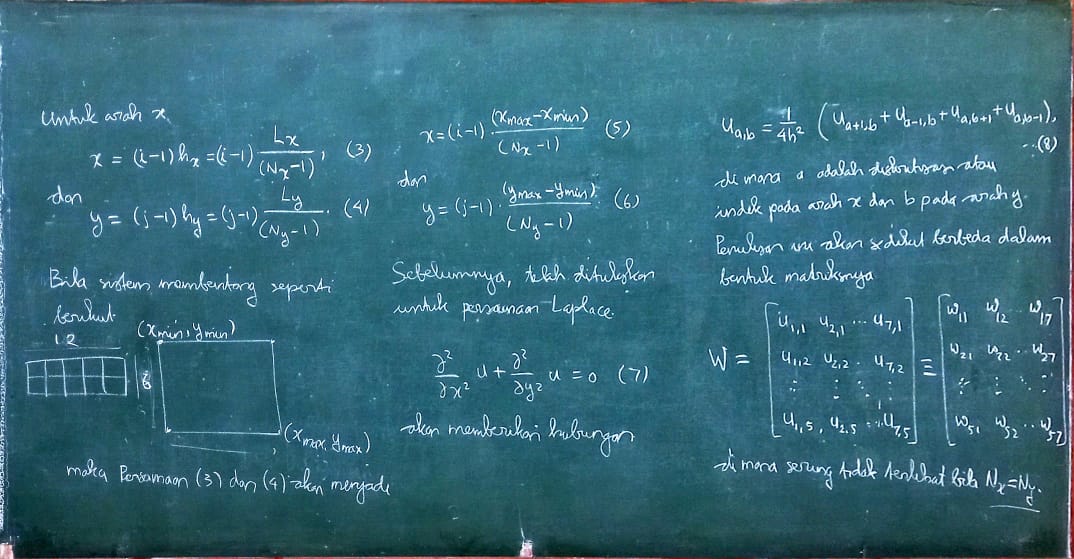 Untuk arah x
x = (i-1) hx = (i-1) Lx/(Nx-1), (3)
dan
y = (j-1) hy = (j-1) Ly/(Ny-1). (4)
Bila sistem membentang seperti
berikut
1 2
(xmin, ymin)
(xmax, ymax)
maka Persamaan (3) dan (4) akan menjadi
x = (i-1) · (xmax-xmin)/(Nx-1) (5)
dan
y = (j-1) · (ymax-ymin)/(Ny-1) (6)
Sebelumnya, telah dituliskan
untuk persamaan Laplace
∂²/∂x² u + ∂²/∂y² u = 0 (7)
akan memberikan hubungan
u_{a,b} = 1/4h² (u_{a+1,b} + u_{a-1,b} + u_{a,b+1} + u_{a,b-1}),
...(8)
di mana a adalah atau
indek pada arah x dan b pada arah y.
Penulisan ini akan sedikit berbeda dalam
bentuk matriksnya
W = [u_{1,1} u_{2,1} ... u_{7,1} ≡ [w_{11} w_{12} ... w_{17}
u_{1,2} u_{2,2} ... u_{7,2} w_{21} w_{22} ... w_{27}
: : : : : : : :
u_{1,5} , u_{2,5} ... u_{7,5}] w_{51} w_{52} ... w_{57}]
di mana sering tidak terlihat bila Nx = Ny.